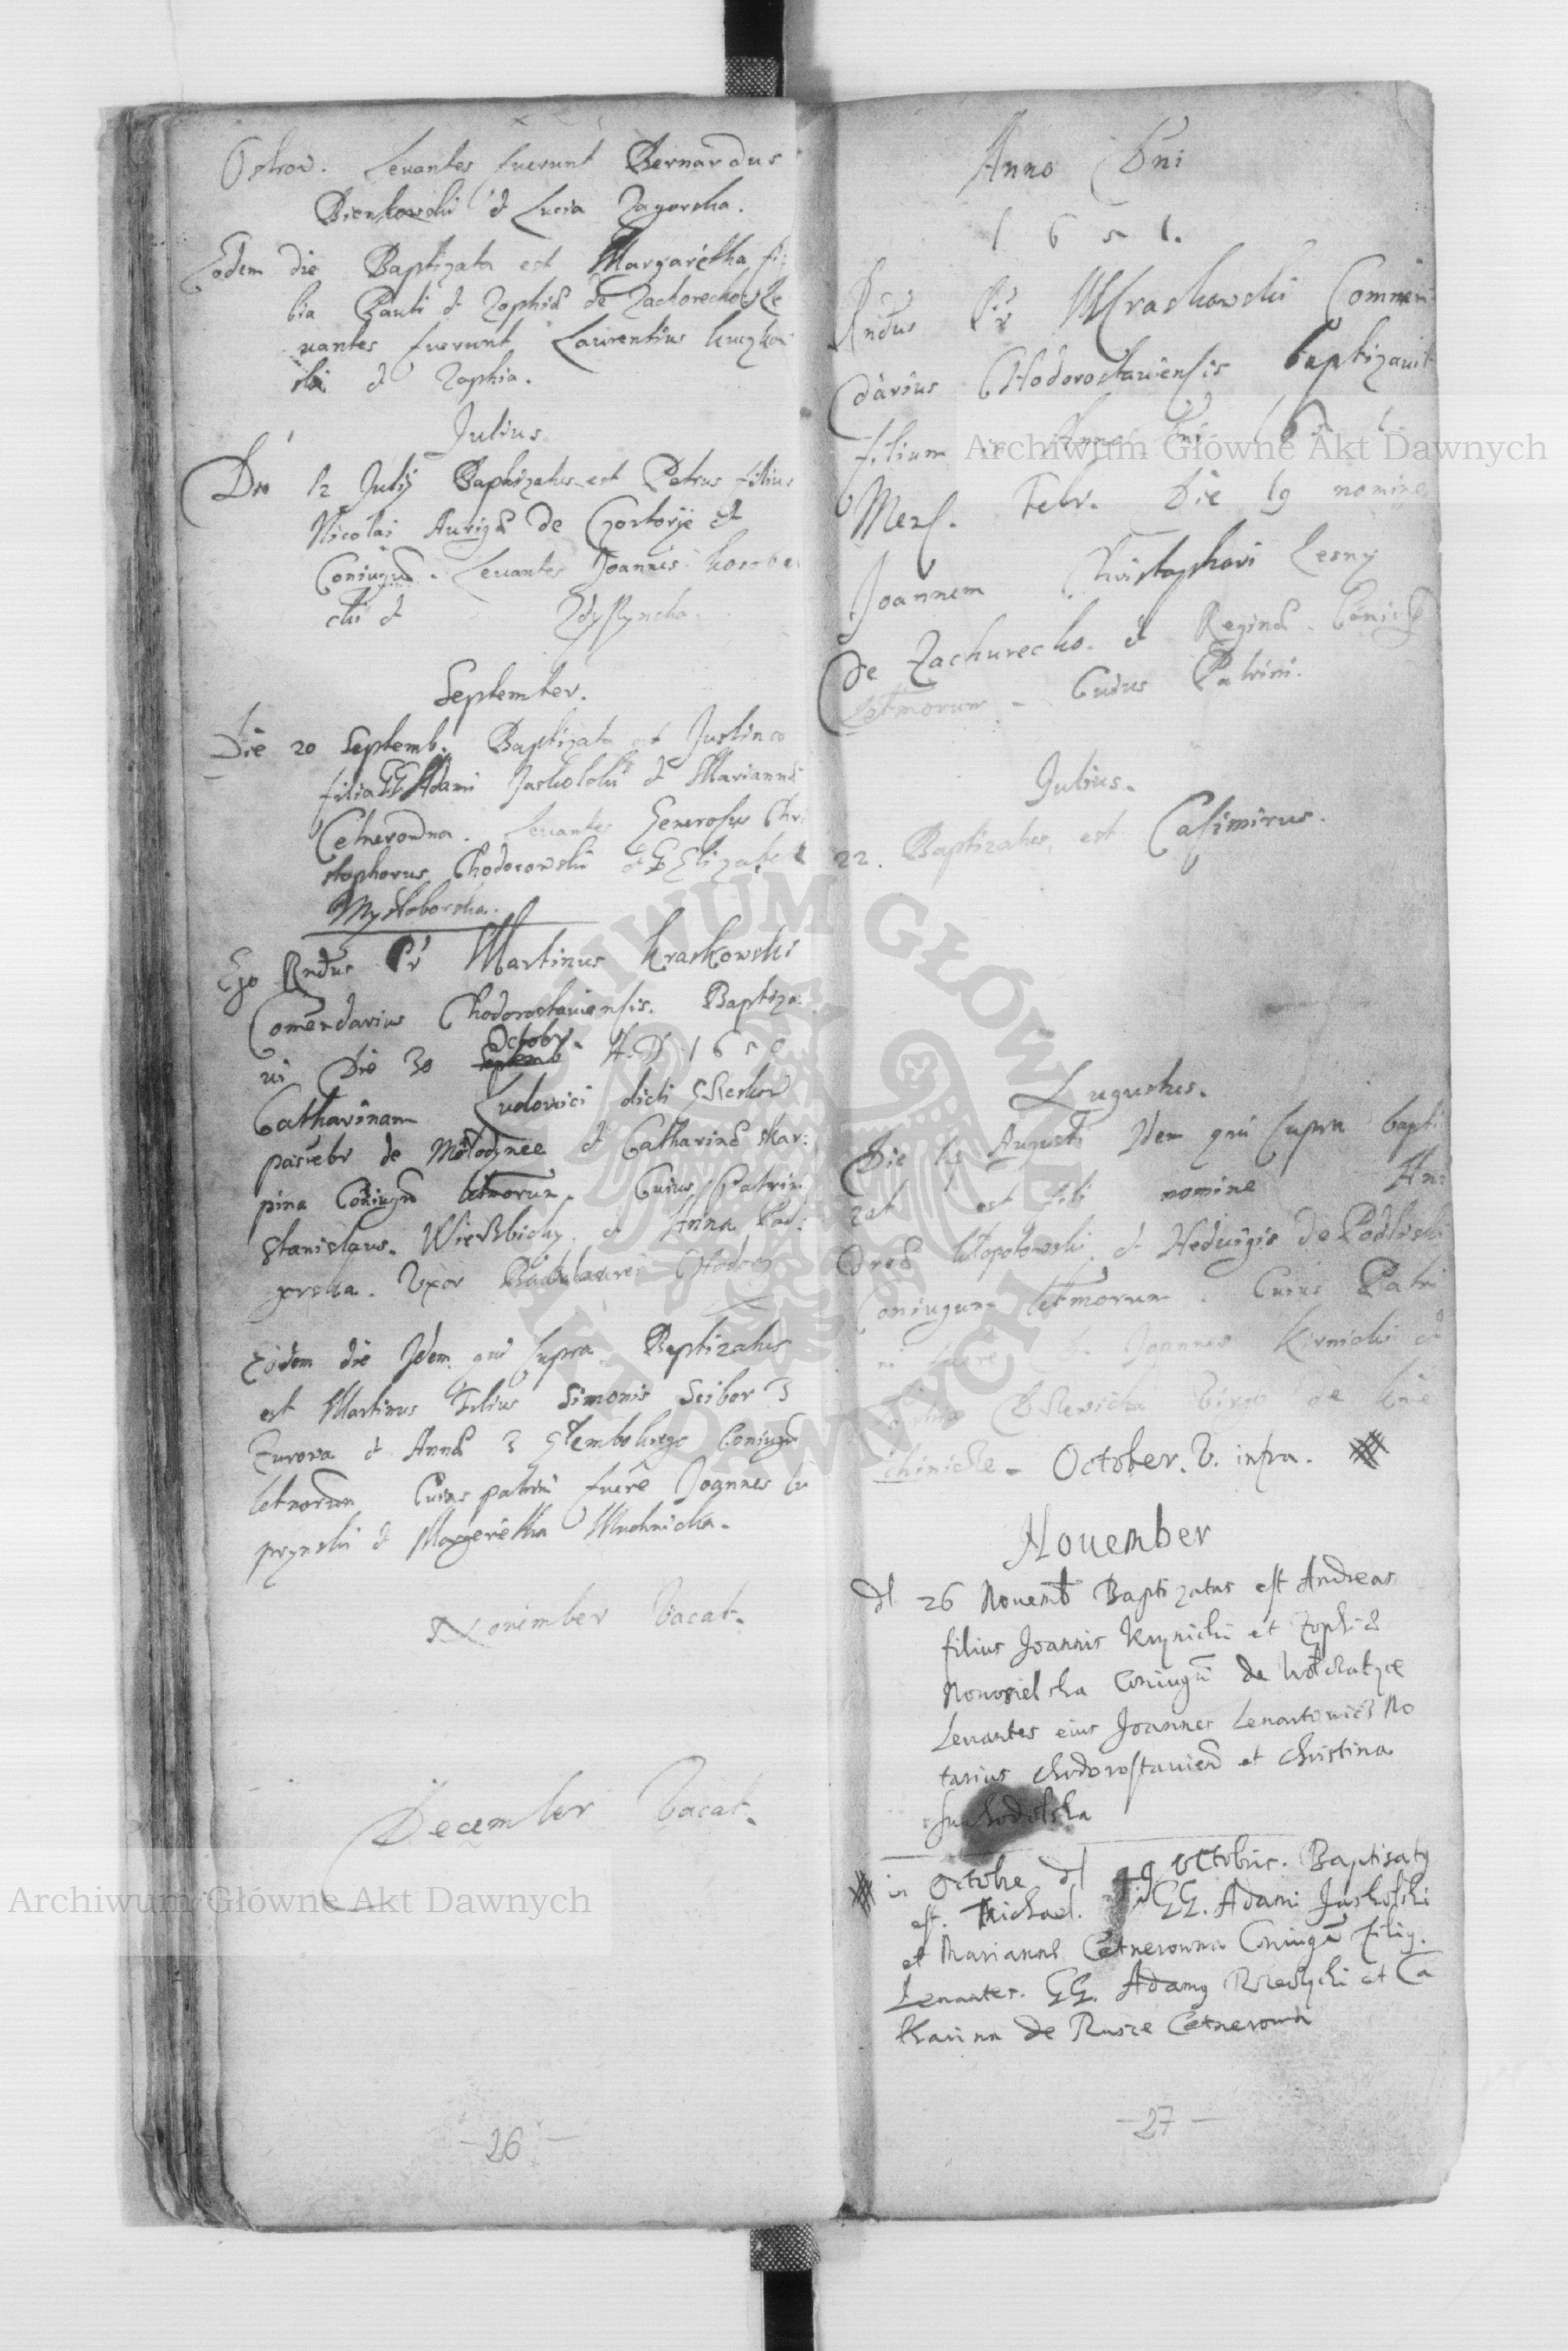 Ostrow. Leuantes fuerunt Bernardus
Bienkowski et Lucia Zagorska.
Eodem die Baptizata est Margaretha fi:
lia Pauli et Zophiæ de Zachorecho Le
uantes fuerunt Laurentius
ski et Zophia.
Julius
Die 12 Julij Baptizatus est Petrus filius
Nicolai Aurigæ de Czortorije et
Coniugũ. Leuantes Joannis
cki et
September.
Die 20 Septemb. Baptizata est Justina
filia GG Adami Jaskolski et Mariannæ
Cetnerowna. Leuantes Generosus Chri
stophorus Chodorowski et G Elizabet
Mysloborska.
Ego Rndus Pr Martinus Kraskowski
Comendarius Chodorostauiensis. Baptiza:
ui Die 30 Octobr. A. D. 1650
Catharinam Ludouici dicti
de Molodynce et Catharinæ Skar:
pina Coniugũ letmorum. Cuius Patrini
Stanislaus et Anna Pod:
gorska. Vxor Baccalaurei Chodor
Eodem die Idem qui supra Baptizatus
est Martinus Filius Simonis Scibor Z
Zurowa et Annæ Z Glembokiego Coniugũ
letmorum Cuius patrini fuere Joannes
et Margeretha Muchnicka.
Nouember Vacat.
December Vacat.
26
Anno Dni
1651.
Rndus Pr M Kraskowski Commen
darius Chodorostauiensis baptizauit
filium Anno Dni 1651
Mens. Febr. Die 19 nomine
Joannem Christophori Lesny
de Zachurecho. et Reginæ Coniugũ
Letmorum. Cuius Patrini.
Julius.
22. Baptizatus est Casimirus.
Augustus.
Die 19 Augusti Idem qui supra bapti
zat est nomine An:
dreæ Klopotowski et Heduigis de Podliski
Coniugum letmorum. Cuius Patri
ni fuere Joannes Kirnicki et
Virgo de Knie
chinicze. October. V. infra.
Nouember
di 26 Nouemb Baptizatus est Andreas
filius Joannis Krynicki et Zophiæ
Nowosielska Coniugũ de Wolczatycze
Leuantes eius Joannes Lenartowicz No
tarius Chodorostauien et Christina
Suchodolska
in Octobre di 29 Octobris. Baptisaty
est. Michael. GG. Adami Jaskolski
et Mariannæ Cetnerowna Coniugũ filig.
Leuantes. GG. Adamg et Ca
tharina de Rusce Cetnerowna
27
Archiwum Główne Akt Dawnych
Archiwum Główne Akt Dawnych
ARCHIWUM GŁÓWNE AKT DAWNYCH